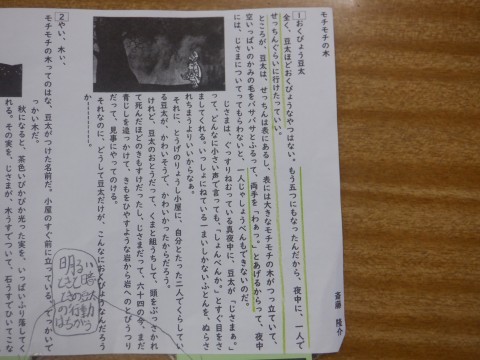 モチモチの木
斎藤 隆介
1 おくびょう豆太
全く、豆太ほどおくびょうなやつはない。もう五つにもなったんだから、夜中に、一人で
せっちんぐらいに行けたっていい。
ところが、豆太は、せっちんは表にあるし、表には大きなモチモチの木がつっ立っていて、
空いっぱいのかみの毛をバサバサとふるって、両手を「わぁっ。」とあげるからって、夜中
には、じさまについてってもらわないと、一人じゃしょうべんもできないのだ。
じさまは、ぐっすりねむっている真夜中に、豆太が「じさまぁ。」
って、どんなに小さい声で言っても、「しょんべんか。」と、すぐ目をさ
ましてくれる。いっしょにねている一まいしかないふとんを、ぬらさ
れちまうよりいいからなぁ。
それに、とうげのりょうし小屋に、自分とたった二人でくらしてい
る豆太が、かわいそうで、かわいかったからだろう。
けれど、豆太のおとうだって、くまと組みうちして、頭をぶっさかれ
て死んだほどのきもすけだったし、じさまだって、六十四の今、まだ
青じしを追っかけて、きもをひやすような岩から岩へのとびうつり
だって、見事にやってのける。
それなのに、どうして豆太だけが、こんなにおくびょうなんだろう
か――。
2 やい、木ぃ、
モチモチの木ってのはな、豆太がつけた名前だ。小屋のすぐ前に立っている、でっかいで
っかい木だ。
秋になると、茶色いぴかぴか光った実を、いっぱいふり落してく
れる。その実を、じさまが、木うすでついて、石うすでひいてこな
明るい